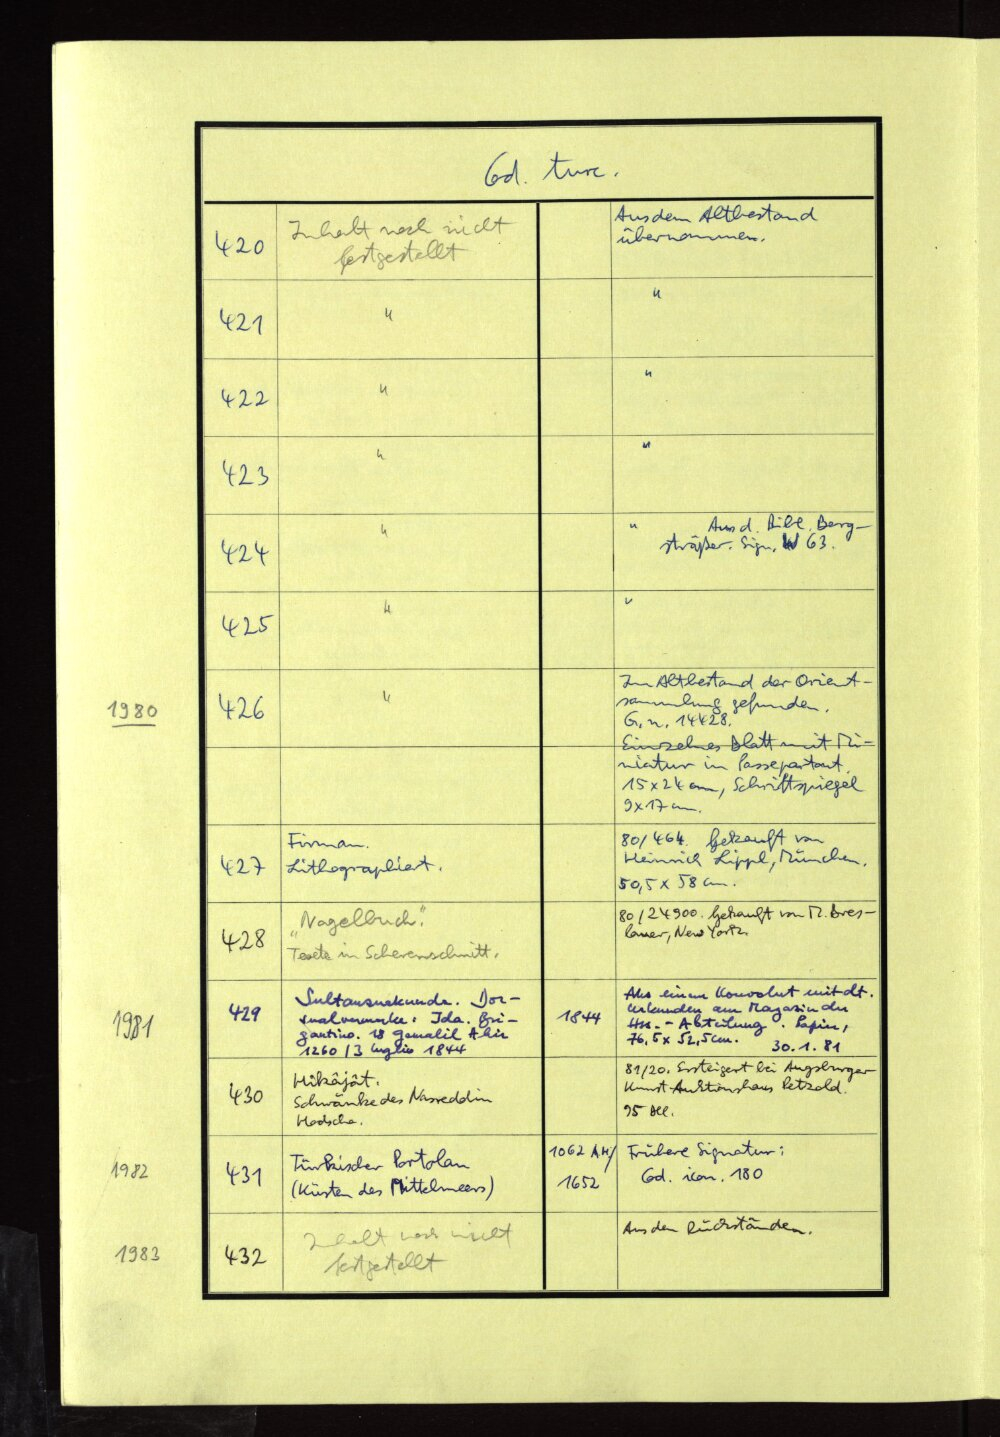 Cod. turc.
420
Inhalt noch nicht
festgestellt
Aus dem Altbestand
übernommen.
421
"
"
422
"
"
423
"
"
424
"
" Aus d. Bibl. Berg-
sträßer. Sign. W 63.
425
"
"
1980
426
"
Im Altbestand der Orient-
sammlung gefunden.
G. n. 14428.
Einzelnes Blatt mit Mi-
niatur in Passepartout.
15 x 24 cm, Schriftspiegel
9 x 17 cm.
427
Firman.
Lithographiert.
80/464. Gekauft von
Heinrich Lippl, München.
50,5 x 58 cm.
428
"Nagelbuch".
Texte in Scherenschnitt.
80/24900. Gekauft von M. Bres-
lauer, New York.
1981
429
Sultansurkunde. Dor-
sualvermerke: Ida. Bri-
gantino. 18
1260 / 3 luglio 1844
1844
Aus einem Konvolut mit dt.
Urkunden am Magazin der
Hss.-Abteilung. Papier,
76,5 x 52,5 cm. 30.1.81
430
Hikâjât.
Schwänke des Nasreddin
Hodscha.
81/20. Ersteigert bei Augsburger
Kunst Auktionshaus Petzold.
95
1982
431
Türkischer Portolan
(Küsten des Mittelmeers)
1062 AH/
1652
Frühere Signatur:
Cod. icon. 180
1983
432
Inhalt noch nicht
festgestellt
Aus den Rückständen.